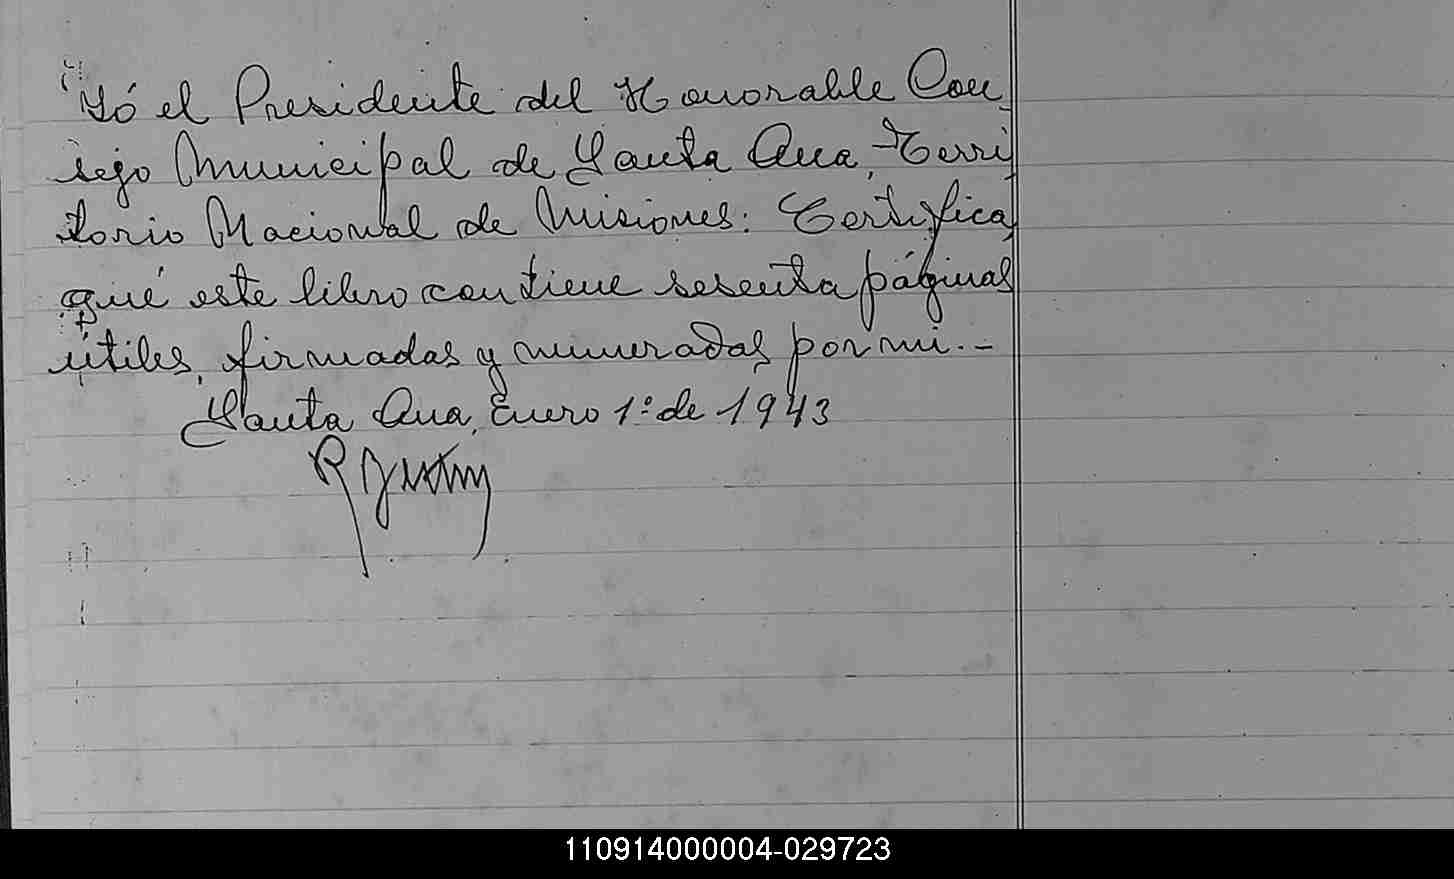 Yó el Presidente del Honorable Con-
sejo Municipal de Santa Ana, Terri-
torio Nacional de Misiones: Certifica,
qué este libro contiene sesenta páginas
útiles, firmadas y numeradas por mi.-
Santa Ana, Enero 1º de 1943
110914000004-029723